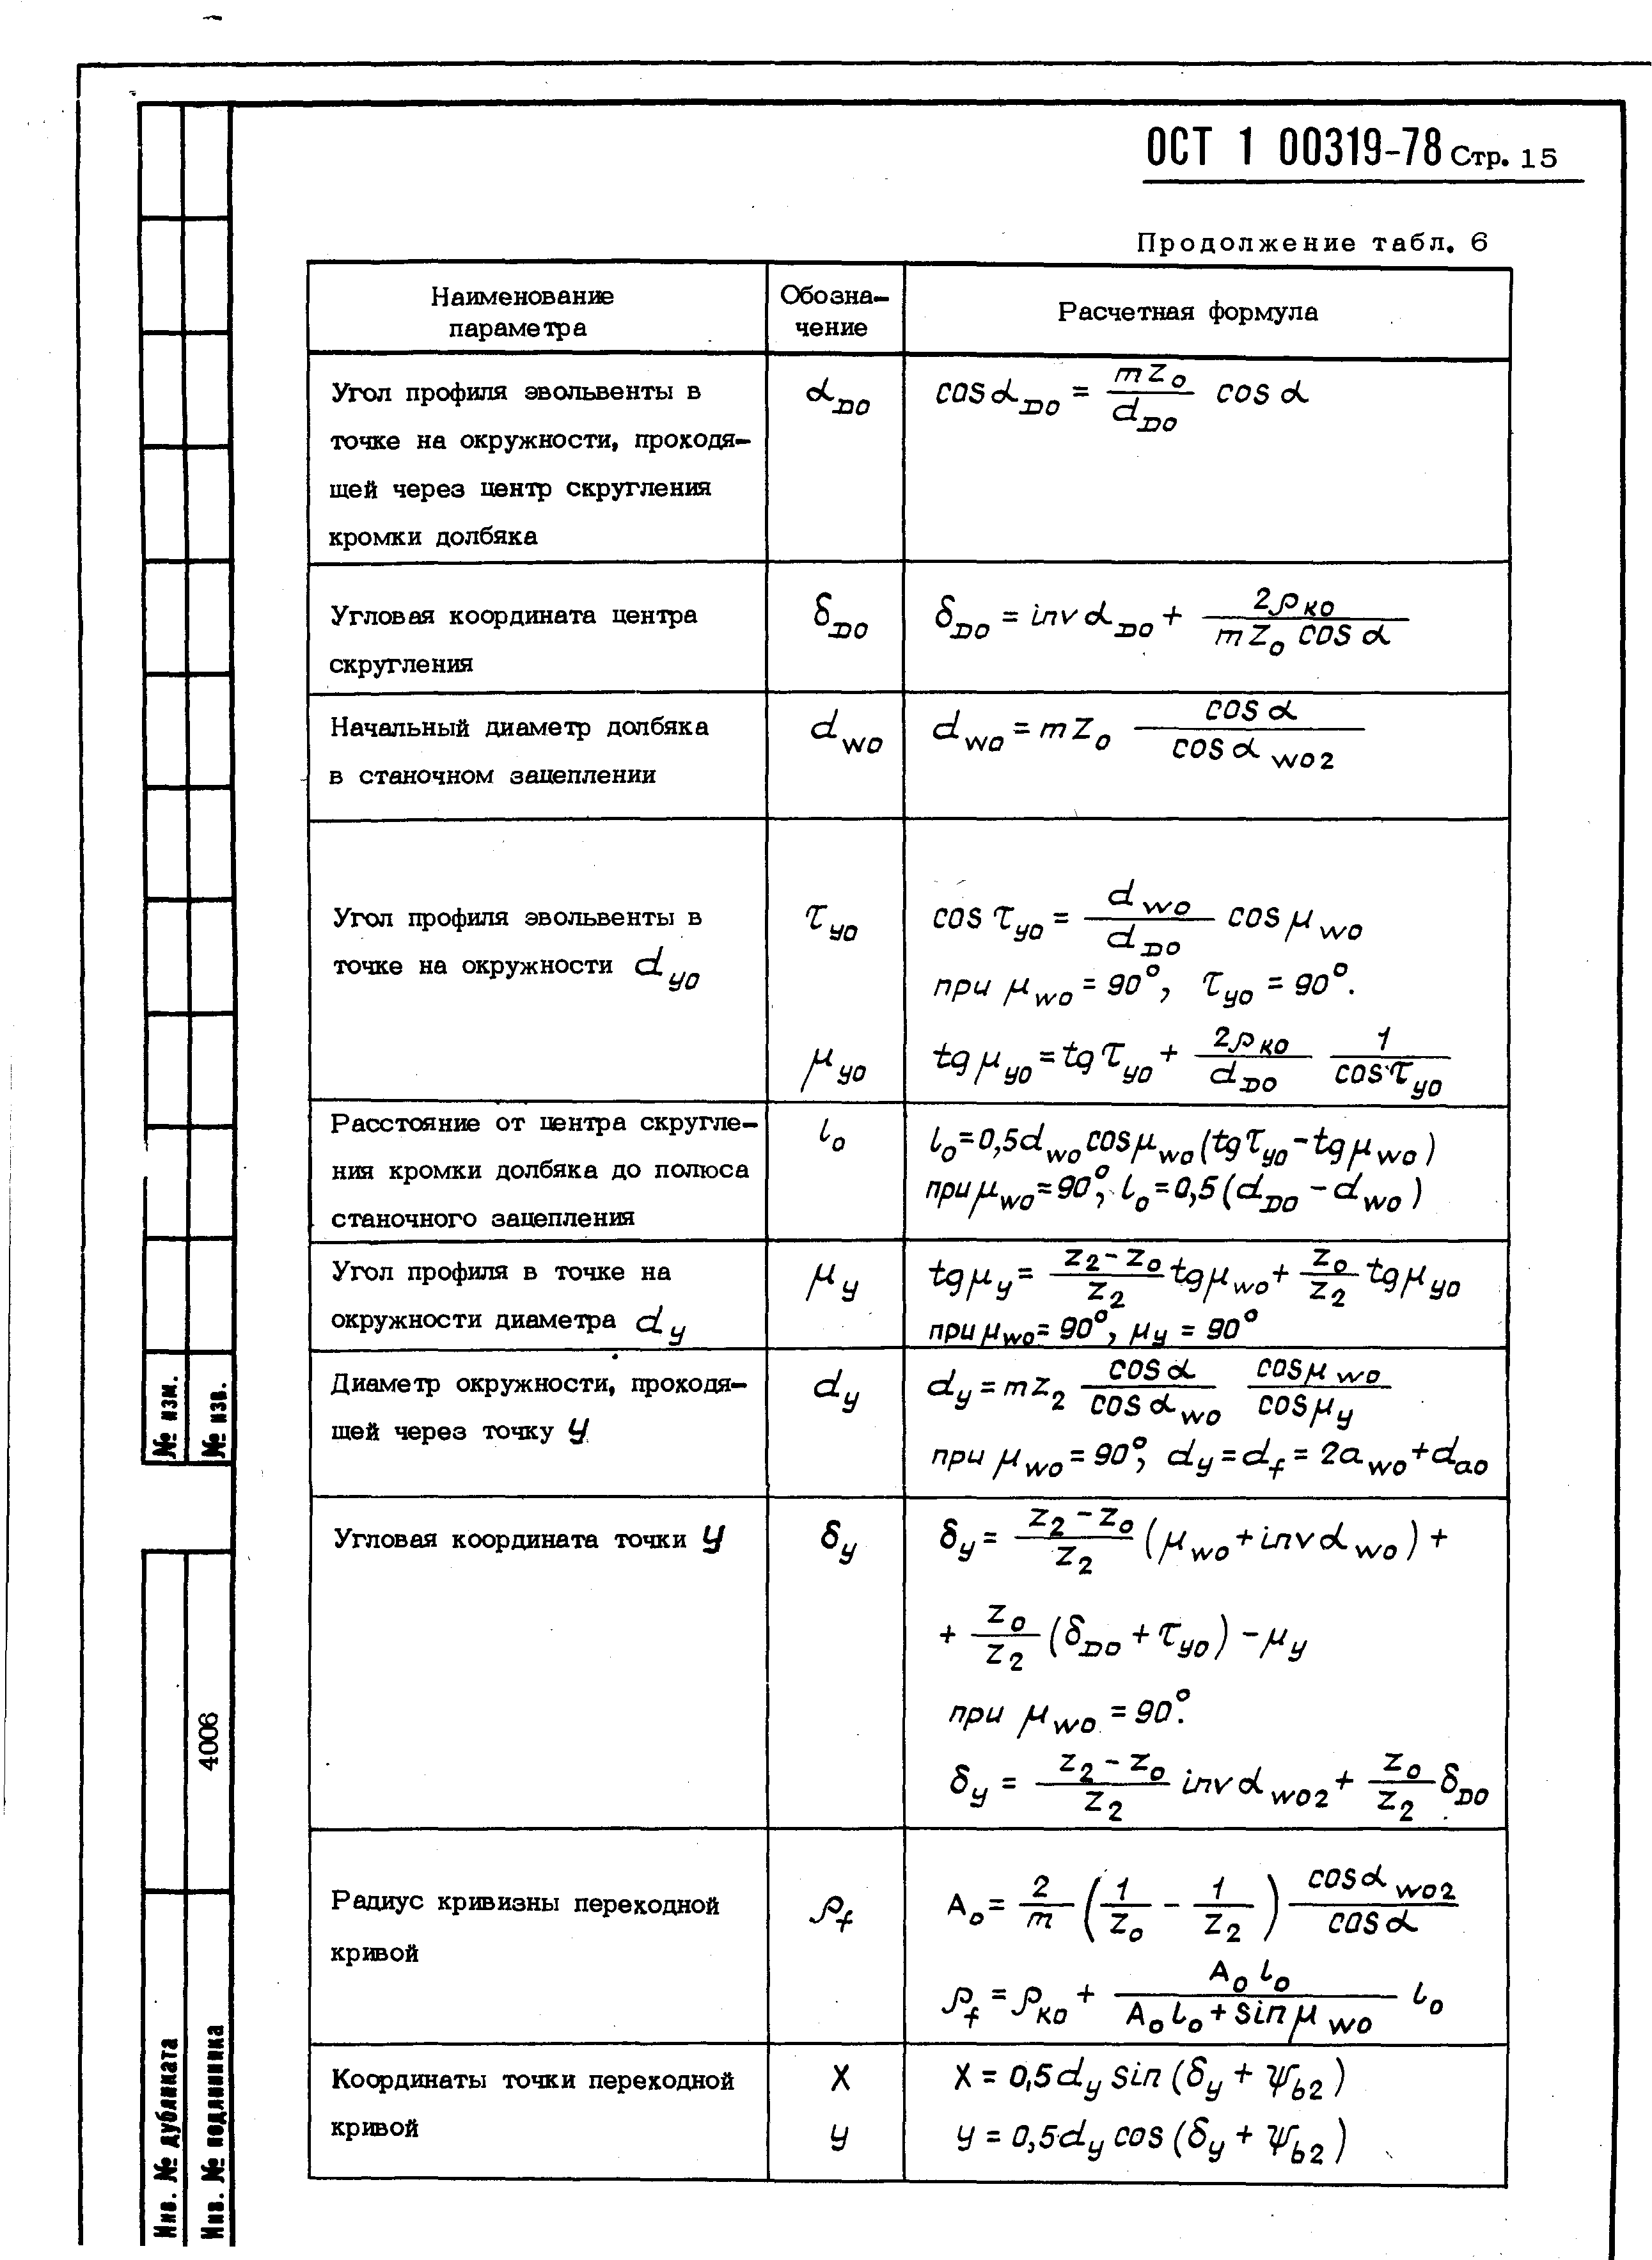 ОСТ 1 00319-78 Стр. 15
Продолжение табл. 6
Наименование
параметра
Обозна-
чение
Расчетная формула
Угол профиля эвольвенты в
точке на окружности, проходя-
щей через центр скругления
кромки долбяка
α_D0
cos α_D0 = mz_0/d_D0 cos α
Угловая координата центра
скругления
δ_D0
δ_D0 = inv α_D0 + 2ρ_к0/(mz_0 cos α)
Начальный диаметр долбяка
в станочном зацеплении
d_w0
d_w0 = mz_0 cos α/cos α_w02
Угол профиля эвольвенты в
точке на окружности d_y0
τ_y0
cos τ_y0 = d_w0/d_D0 cos μ_w0
при μ_w0 = 90°, τ_y0 = 90°.
μ_y0
tg μ_y0 = tg τ_y0 + 2ρ_к0/d_D0 1/cos τ_y0
Расстояние от центра скругле-
ния кромки долбяка до полюса
станочного зацепления
l_0
l_0 = 0,5d_w0 cos μ_w0 (tg τ_y0 - tg μ_w0)
при μ_w0 = 90°, l_0 = 0,5 (d_D0 - d_w0)
Угол профиля в точке на
окружности диаметра d_y
μ_y
tg μ_y = (z_2 - z_0)/z_2 tg μ_w0 + z_0/z_2 tg μ_y0
при μ_w0 = 90°, μ_y = 90°
Диаметр окружности, проходя-
щей через точку y
d_y
d_y = mz_2 cos α/cos α_w0 cos μ_w0/cos μ_y
при μ_w0 = 90°, d_y = d_f = 2a_w0 + d_a0
Угловая координата точки y
δ_y
δ_y = (z_2 - z_0)/z_2 (μ_w0 + inv α_w0) +
+ z_0/z_2 (δ_D0 + τ_y0) - μ_y
при μ_w0 = 90°.
δ_y = (z_2 - z_0)/z_2 inv α_w02 + z_0/z_2 δ_D0
Радиус кривизны переходной
кривой
ρ_f
A_0 = 2/m (1/z_0 - 1/z_2) cos α_w02/cos α
ρ_f = ρ_к0 + A_0 l_0/(A_0 l_0 + sin μ_w0) l_0
Координаты точки переходной
кривой
X
y
X = 0,5d_y sin (δ_y + ψ_b2)
y = 0,5d_y cos (δ_y + ψ_b2)
№ изм.
№ изв.
4006
Инв. № дубликата
Инв. № подлинника